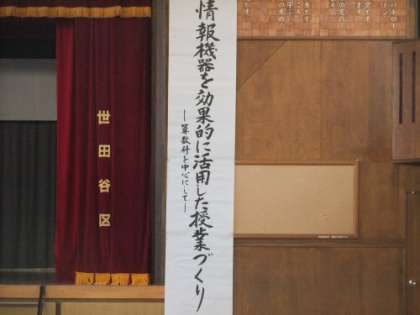 情報機器を効果的に活用した授業づくり
―算数科を中心にして―
世田谷区